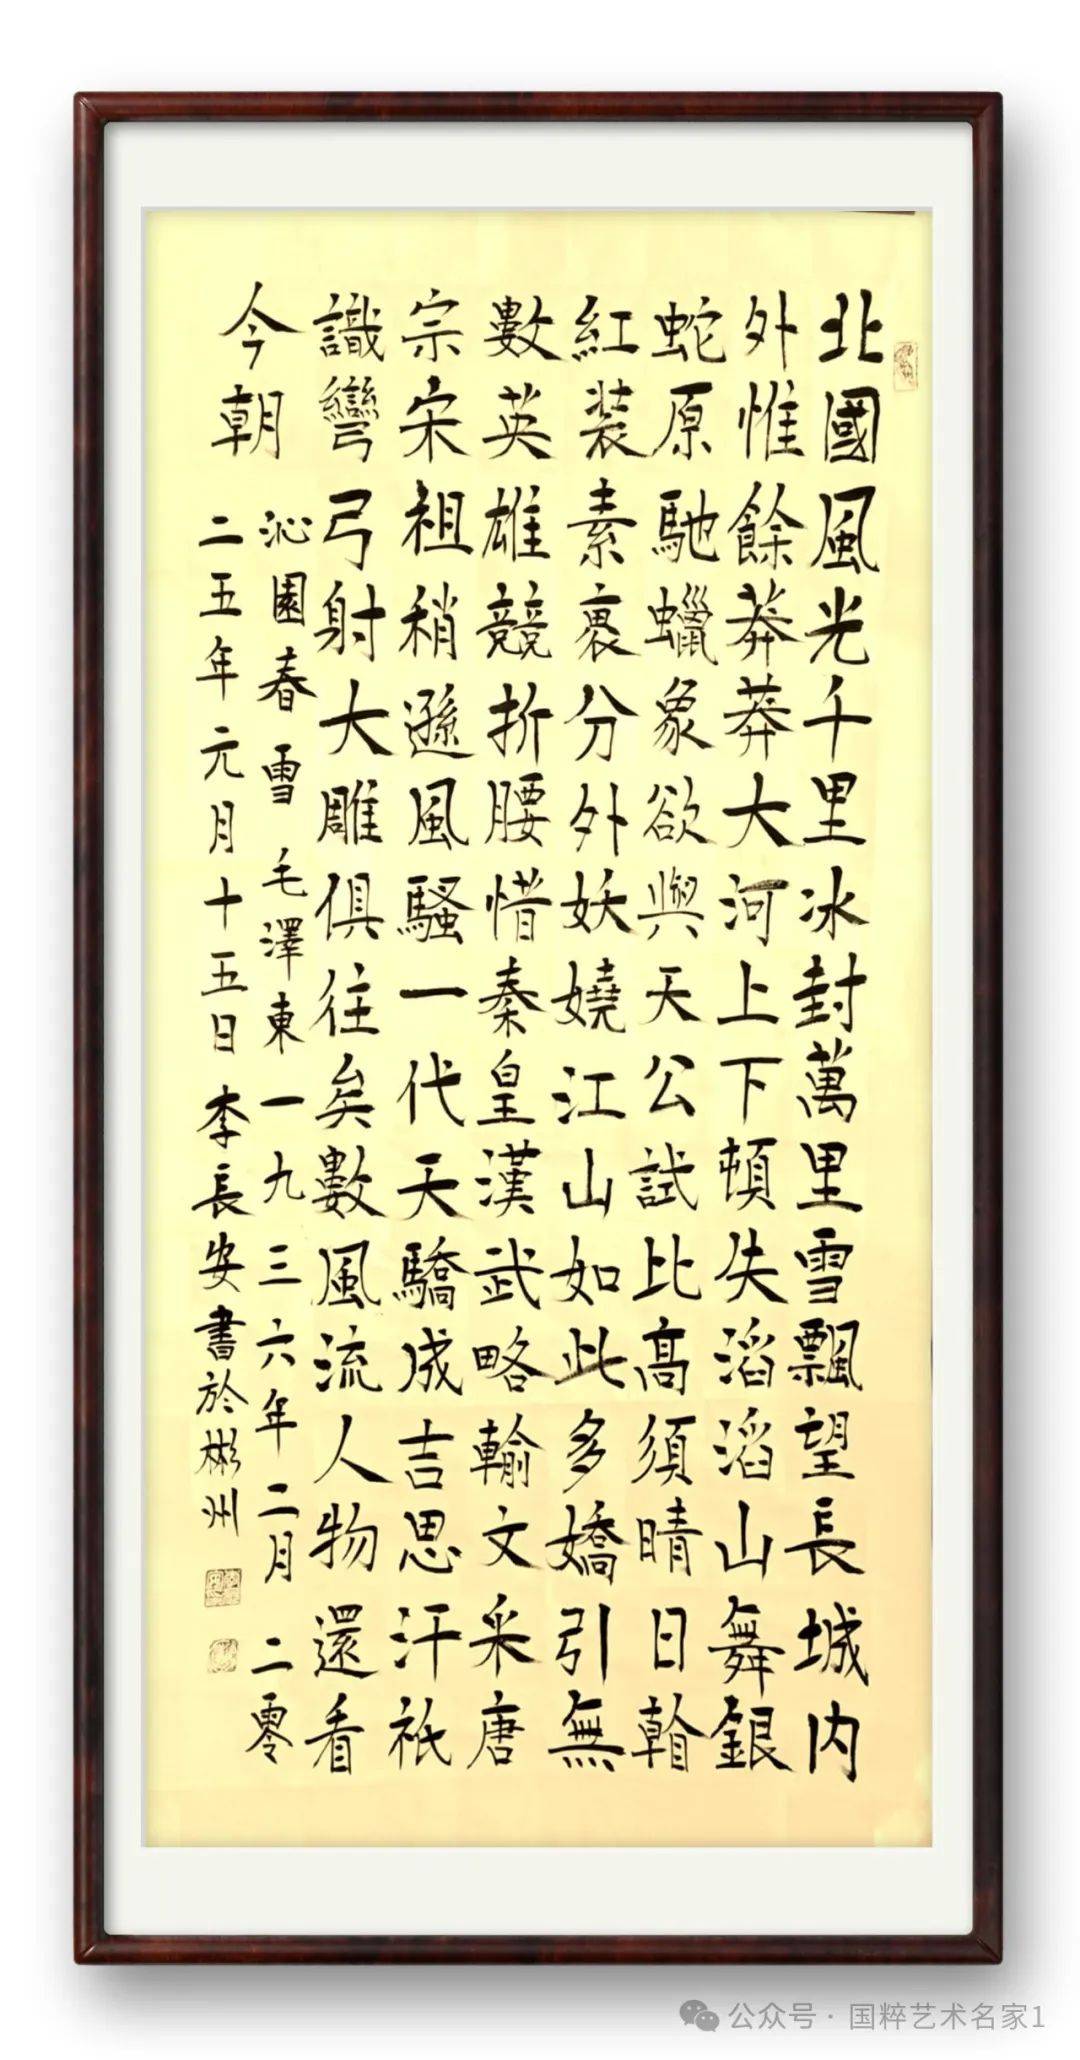 北國風光千里冰封萬里雪飄望長城内
外惟餘莽莽大河上下頓失滔滔山舞銀
蛇原馳蠟象欲與天公試比高須晴日看
紅裝素裹分外妖嬈江山如此多嬌引無
數英雄競折腰惜秦皇漢武略輸文采唐
宗宋祖稍遜風騷一代天驕成吉思汗祇
識彎弓射大雕俱往矣數風流人物還看
今朝 沁園春 雪 毛澤東 一九三六年二月 二零
二五年元月十五日 李長安書於彬州
公众号 · 国粹艺术名家1